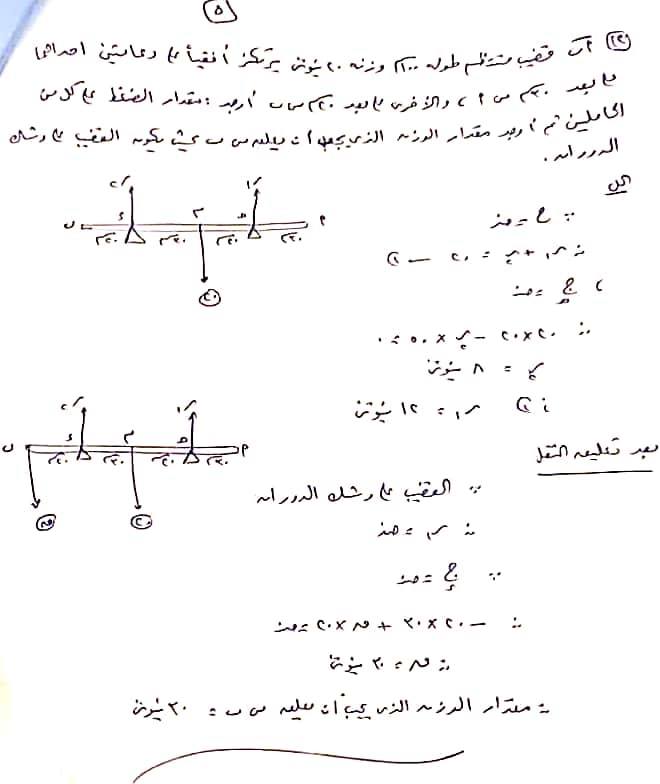 ٥
(١٢) أ ب قضيب منتظم طوله ١٠٠ سم وزنه ٢٠ نيوتن يرتكز أفقياً على دعامتين احداهما
على بعد ٣٠ سم من أ ، والأخرى على بعد ٢٠ سم من ب أوجد : مقدار الضغط على كل من
الحاملين ثم أوجد مقدار الوزن الذى يجب أن يعلق من ب بحيث يكون القضيب على وشك
الدوران .
الحل
∵ ع = صفر
∴ ر١ + ر٢ = ٢٠ ← ①
، ج = صفر
∴ ٢٠ × ٢٠ − ر٢ × ٥٠ = ٠
ر٢ = ٨ نيوتن
① ر١ = ١٢ نيوتن
ر٢ ر١
ب د م ح أ
٢٠ سم ٣٠ سم ٢٠ سم ٣٠ سم
٢٠
بعد تعليق الثقل
ر٢ ر١
ب د م ح أ
٢٠ سم ٣٠ سم ٢٠ سم ٣٠ سم
و ٢٠
∵ القضيب على وشك الدوران
∴ ر١ = صفر
∵ ج د = صفر
∴ − ٢٠ × ٣٠ + و × ٢٠ = صفر
∴ و = ٣٠ نيوتن
∴ مقدار الوزن الذى يجب أن يعلق من ب = ٣٠ نيوتن